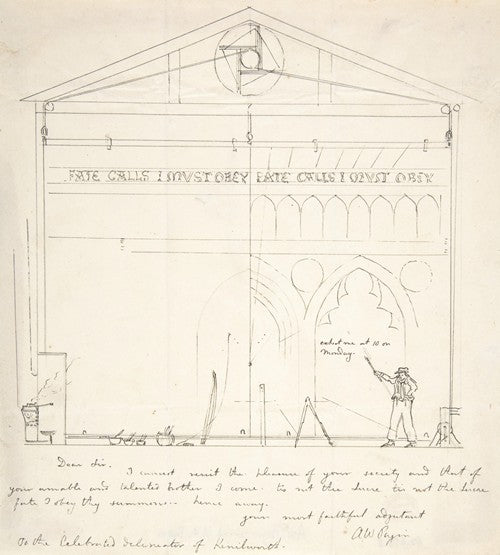 FATE CALLS I MUST OBEY FATE CALLS I MUST OBEY
expect me at 10 on
Monday.
Dear Sir. I cannot resist the pleasure of your society and that of
your amiable and talented brother I come. tis not the lucre tis not the lucre
fate I obey thy summons... hence away.
your most faithful adjutant
AW Pugin
To the Celebrated delineator of Kenilworth.